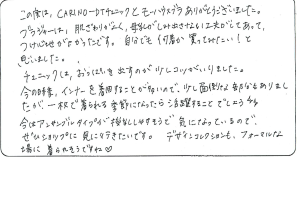 この度は、CARINO-DTチュニックとモーハウスブラありがとうございました。
ブラジャーは、肌ざわりがよく、母乳がしみ出さない工夫がしてあって、
つけ心地がよかったです。自分でも何着か買ってみたい!と
思いました。
チュニックは、おっぱいを出すのが少しコツがいりました。
今の時季、インナーを着用することが多いので、少し面倒な部分もありまし
たが、一枚で着られる季節になったら活躍することでしょう
今はアンサンブルタイプが授乳しやすそうで気になっているので、
ぜひショップに見に行きたいです。デザインコレクションも、フォーマルな
場に着られそうですね♡